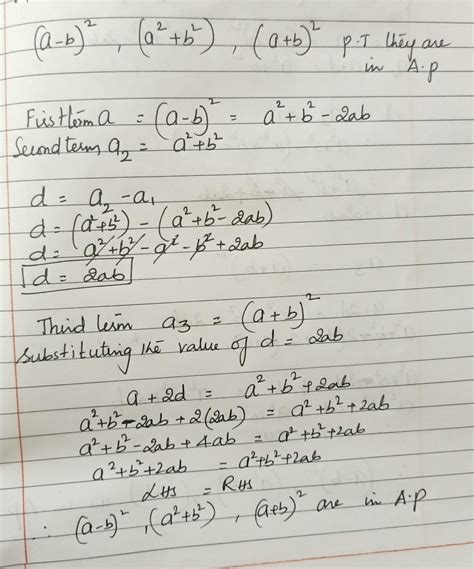 (a-b)², (a²+b²), (a+b)² P.T they are
in A.p
First term a = (a-b)² = a²+b²-2ab
Second term a₂ = a²+b²
d = a₂ - a₁
d = (a²+b²) - (a²+b²-2ab)
d = a²+b²-a²-b²+2ab
d = 2ab
Third term a₃ = (a+b)²
Substituting the value of d = 2ab
a + 2d = a²+b²+2ab
a²+b²-2ab+2(2ab) = a²+b²+2ab
a²+b²-2ab+4ab = a²+b²+2ab
a²+b²+2ab = a²+b²+2ab
LHS = RHS
∴ (a-b)², (a²+b²), (a+b)² are in A.p